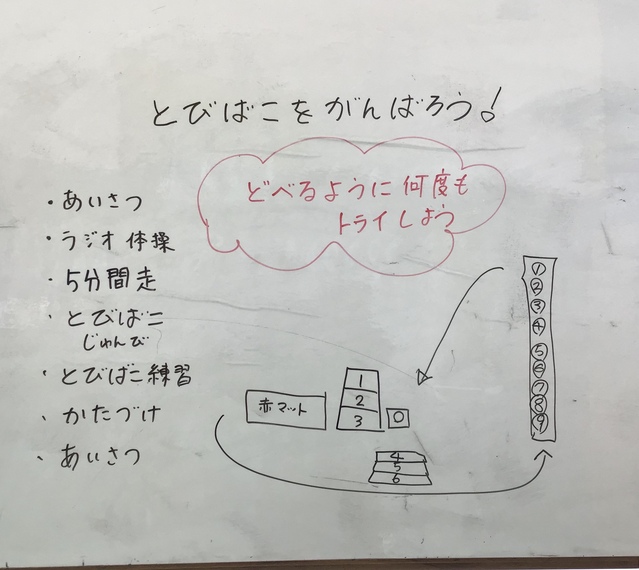 とびばこをがんばろう!
どべるように何度も
トライしよう
・あいさつ
・ラジオ体操
・5分間走
・とびばこ
じゅんび
・とびばこ練習
・かたづけ
・あいさつ
赤マット
1
2
3
0
4
5
6
①
②
③
④
⑤
⑥
⑦
⑧
⑨